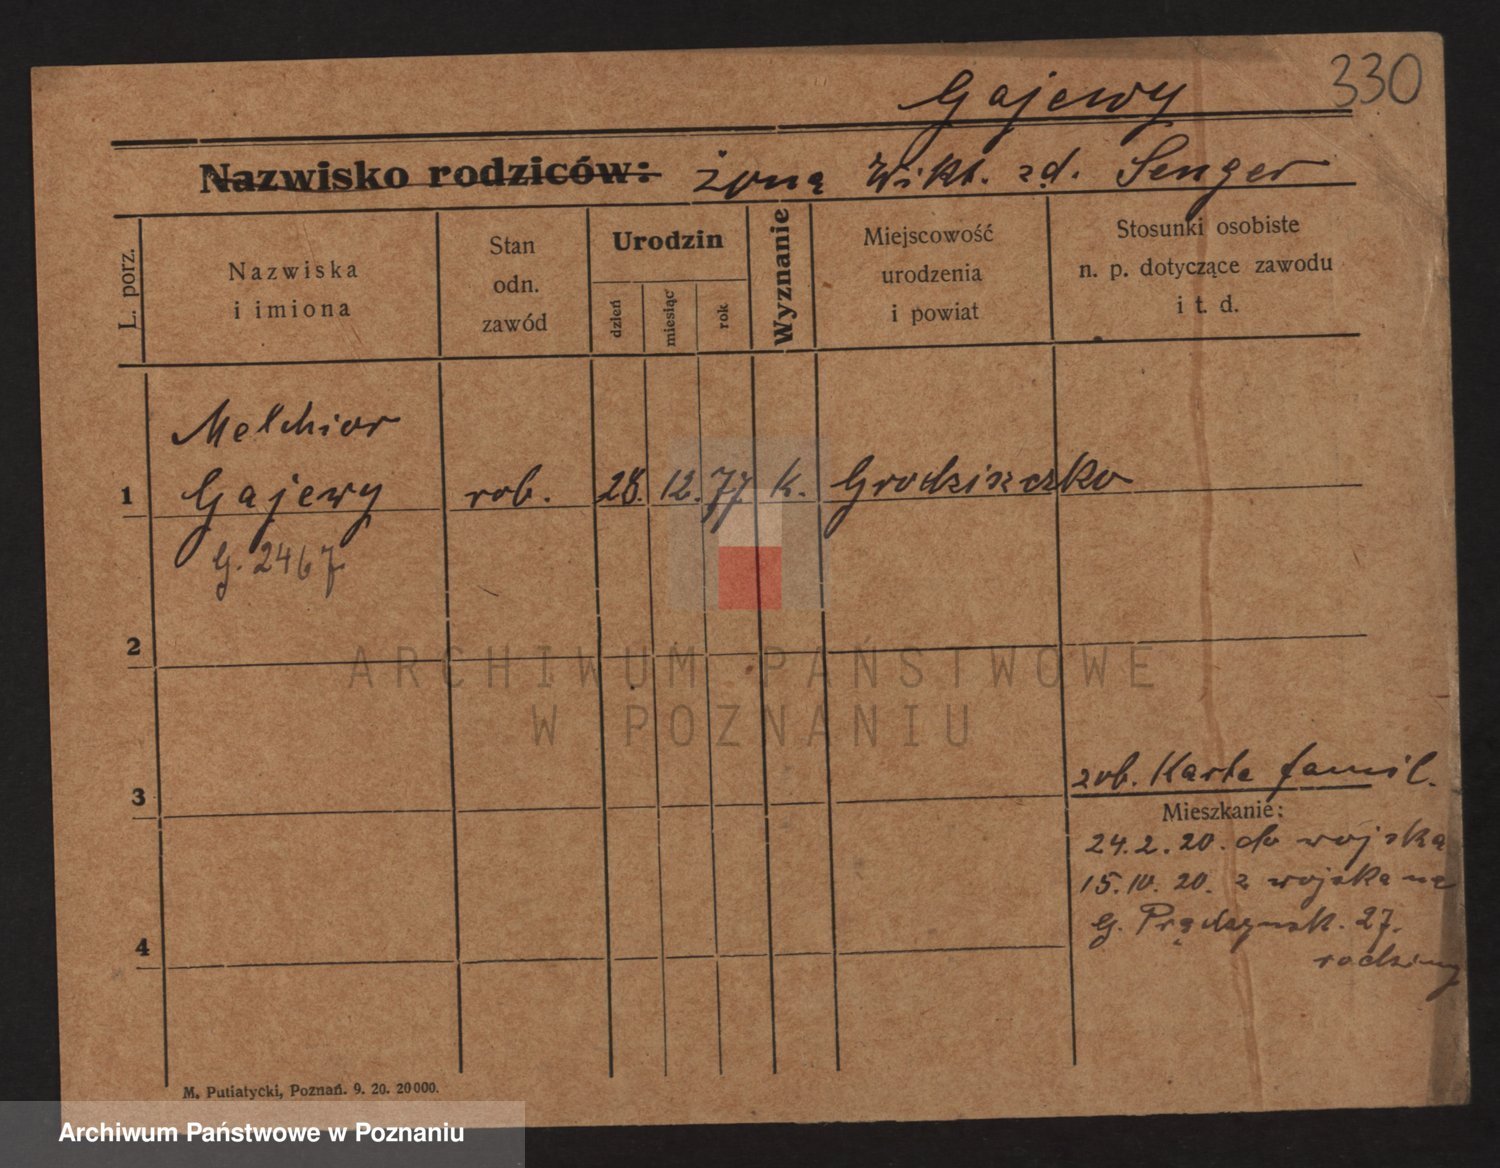 330
Gajewy
Nazwisko rodziców: żona Wikt. zd. Senger
L. porz.
Nazwiska
i imiona
Stan
odn.
zawód
Urodzin
dzień
miesiąc
rok
Wyznanie
Miejscowość
urodzenia
i powiat
Stosunki osobiste
n. p. dotyczące zawodu
i t. d.
Melchior
1 Gajewy rob. 28. 12. 77 k. Grodziszczko
G. 2467
2
ARCHIWUM PAŃSTWOWE
W POZNANIU
zob. Karta famil.
3
Mieszkanie:
24.2.20. do wojska
15.10.20. z wojska na
G. Prądzynsk. 27.
4
rodziny
M. Putiatycki, Poznań. 9. 20. 20000.
Archiwum Państwowe w Poznaniu